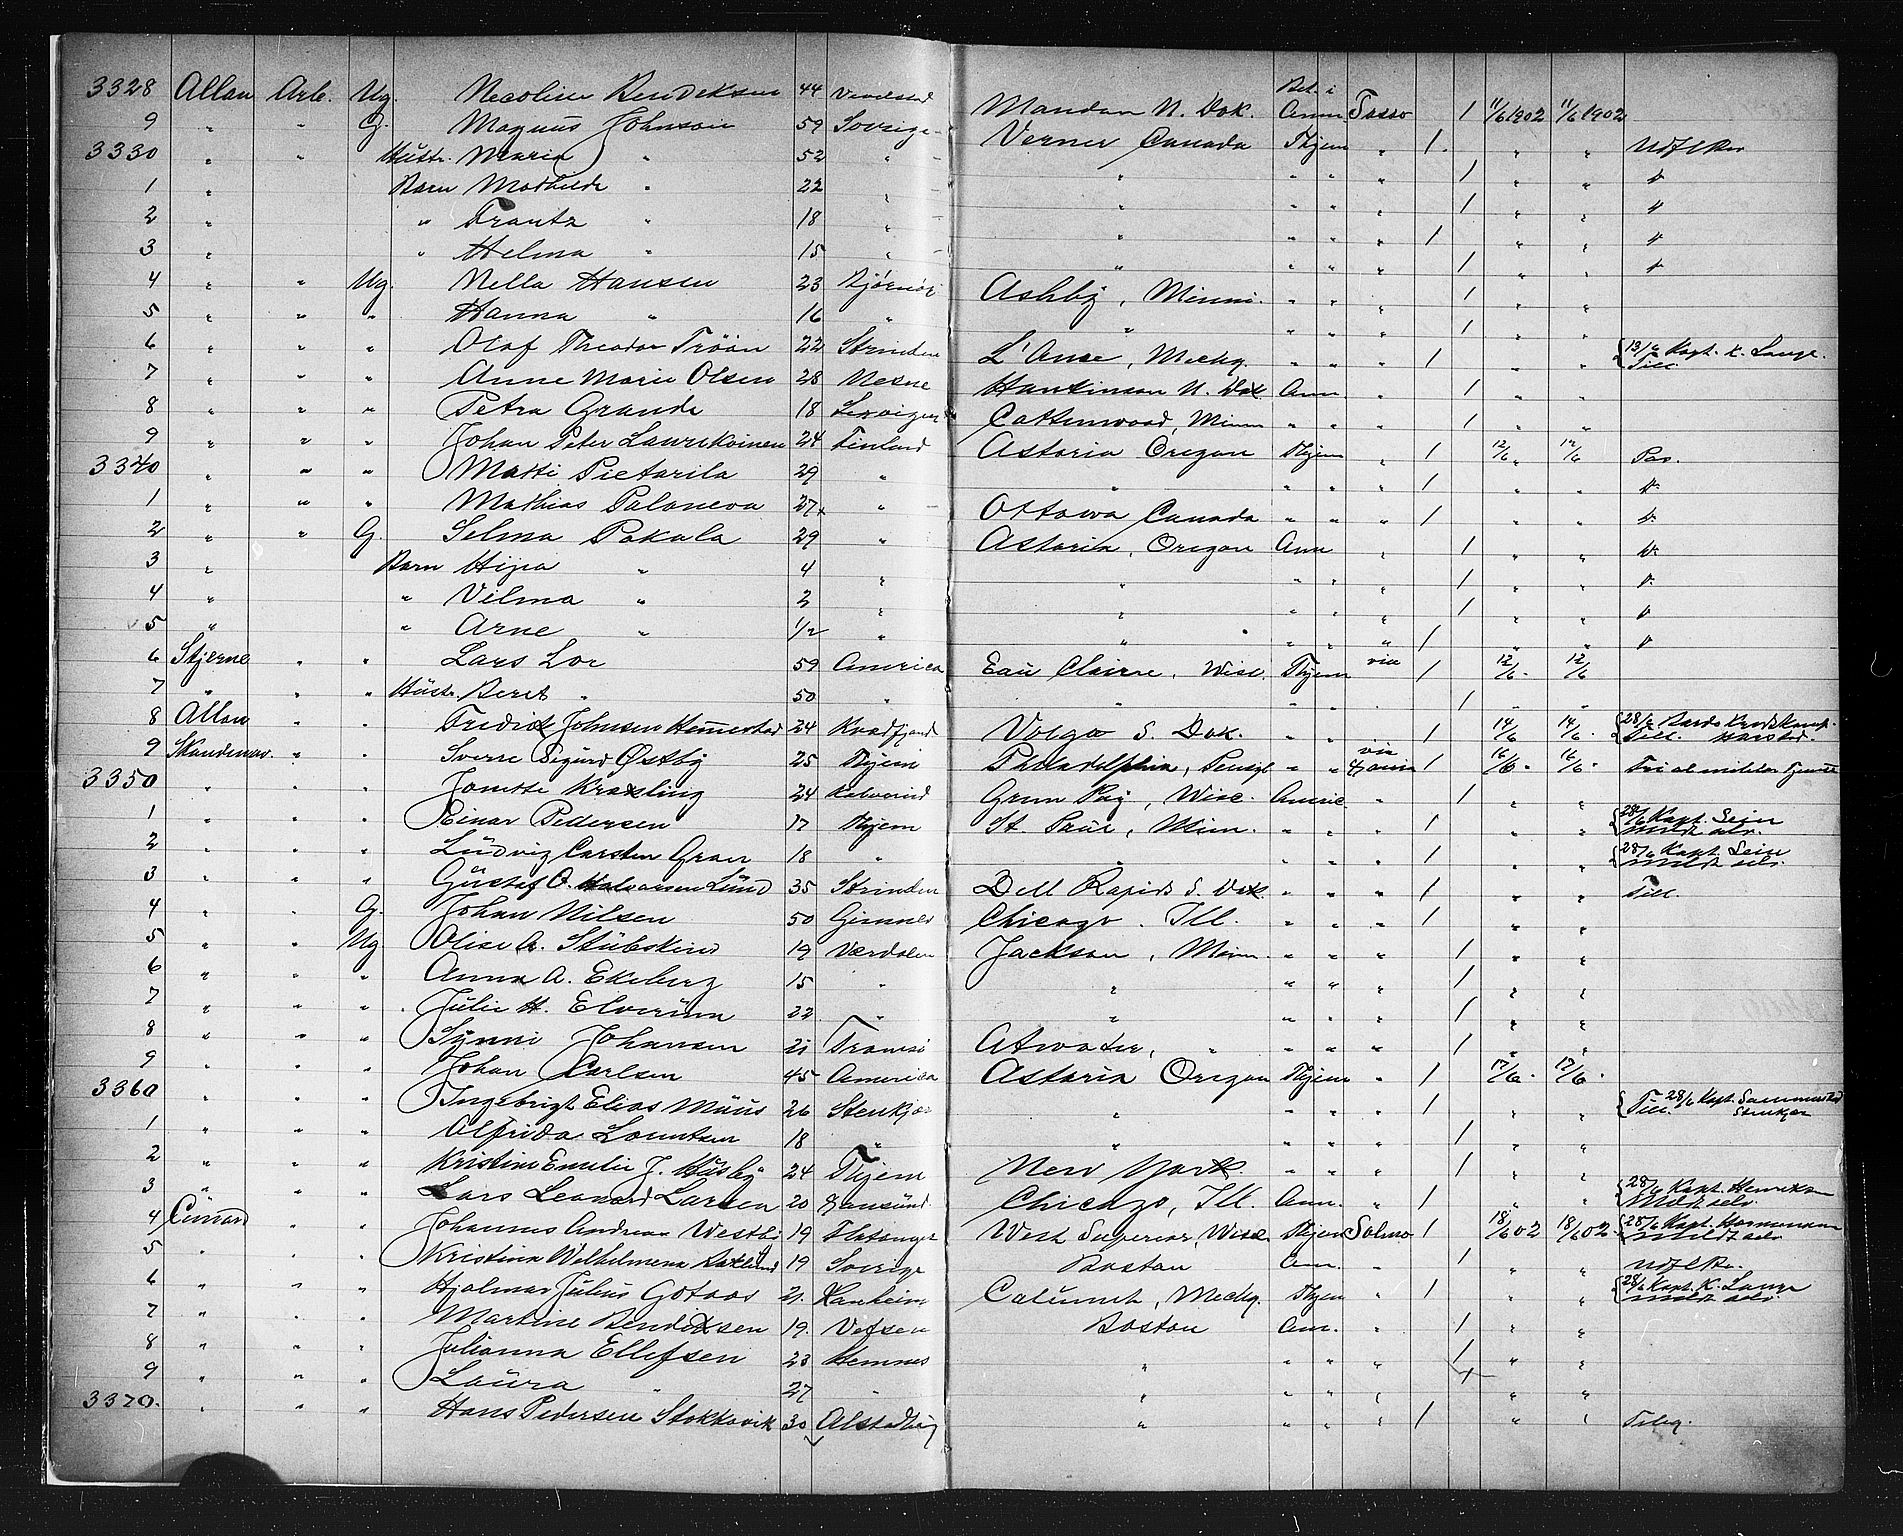 3328 Allan Arb. Ug. Necoline Bendeksen 44 Mandan N. Dok. Bet. i Am Tasso 1 11/6 1902 11/6 1902
9 " " G. Magnus Johnson 59 Sverige Verner Canada Thjem " 1 " "
3330 " " Hustr. Maria " 52 " " " " " 1 " "
1 " Barn Mathilde " 22 " " " " " 1 " "
2 " " Frantz " 18 " " " " " 1 " "
3 " " Helma " 15 " " " " " 1 " "
4 " " Ug. Nella Hansen 23 Bjørnør Ashby, Minni. " " " 1 " "
5 " " " Hanna " 16 " " " " " 1 " "
6 " " " Olaf Theodor Trøan 22 Strinden L'Anse, Mechg. " " " 1 " " 13/6 Kapt. K. Lange. Till.
7 " " " Anne Marie Olsen 28 Nesne Hankinson N. Dak. Am. " 1 " "
8 " " " Petra Grande 18 Cottenwood, Minn " " " 1 " "
9 " " " Johan Peter Laurikainen 24 Finland Astoria Oregon Thjem " 1 12/6 12/6 Pas.
3340 " " " Matti Pietarila 29 " " " " " 1 " " "
1 " " " Mathias Paloneva 27 " Ottawa Canada " " " 1 " " "
2 " " G. Selma Pakala 29 " Astoria, Oregon Am " 1 " " "
3 " Barn Hipa " 4 " " " " " 1 " " "
4 " " Vilma " 2 " " " " " 1 " " "
5 " " Arne " 1/2 " " " " " 1 " " "
6 Stjerne " " Lars Lor 59 America Eau Claire, Wisc. Thjem via 1 12/6 12/6
7 " " " Hustr. Beret " 50 " " " 1 " "
8 Allan " " Fredrik Johnsen Hemmestad 24 Kvædfjord Volga S. Dak. " " " 1 14/6 14/6 28/6 Till. Harstad.
9 Skandinav. " " Sverre Sigurd Østby 25 Thjem Philadelphia, Pensyl " " via 1 16/6 16/6 Fri al militær Tjeneste
3350 " " " Jonette Kræsling 24 Green Bay, Wisc. Americ " 1 " "
1 " " " Einar Pedersen 17 Thjem St. Paul, Minn. " " " 1 " " 28/6 Kapt. Sein
2 " " " Ludvig Carsten Gran 18 " " " " " 1 " " 28/6 Kapt. Sein
3 " " " Gustaf O. Halvorsen Lund 35 Strinden Dell Rapids S. Dak. " " " 1 " " Till.
4 " " G. Johan Nilsen 50 Chicago. Ill. " " " 1 " "
5 " " Ug Olise A. Stubskind 19 Værdalen Jackson, Minn. " " " 1 " "
6 " " " Anna A. Ekeberg 15 " " " " " 1 " "
7 " " " Julie H. Elverum 22 " " " " " 1 " "
8 " " " Synni Johansen 21 Tromsø Atwater, " " " " 1 " "
9 " " " Johan Carlsen 45 America Astoria Oregon Thjem " 1 17/6 17/6
3360 " " " Ingebrigt Elias Muus 26 Stenkjær " " " " 1 " " Till. 28/6 Kapt. Stenkjær
1 " " " Alfrida Lorentsen 18 " " " " " 1 " "
2 " " " Kristine Emelie J. Husby 24 Thjem New York. " " " 1 " "
3 " " " Lars Leonard Larsen 20 Chicago, Ill. Am. " 1 " " 28/6 Kapt. Henriksen
4 Cunard " " Johannes Andreas Westbi 19 Flatanger West Superior, Wisc. Thjem Salmo 1 18/6 02 18/6 02 28/6 Kapt.
5 " " " Kristina Wilhelmena 19 Sverige Boston Am. " 1 " "
6 " " " Hjalmar Julius Gotaas 21 Calumet, Mechg. Thjem " 1 " " 28/6 Kapt. K. Lange
7 " " " Martine Bendiksen 19 Vefsen Boston Am. " 1 " "
8 " " " Julianna Ellefsen 23 Hemnes " " " " 1 " "
9 " " " Laura " 27 " " " " " 1 " "
3370. " " " Hans Pedersen Stokkavik 30 Alstadhaug " " " " 1 " " Tilleg.